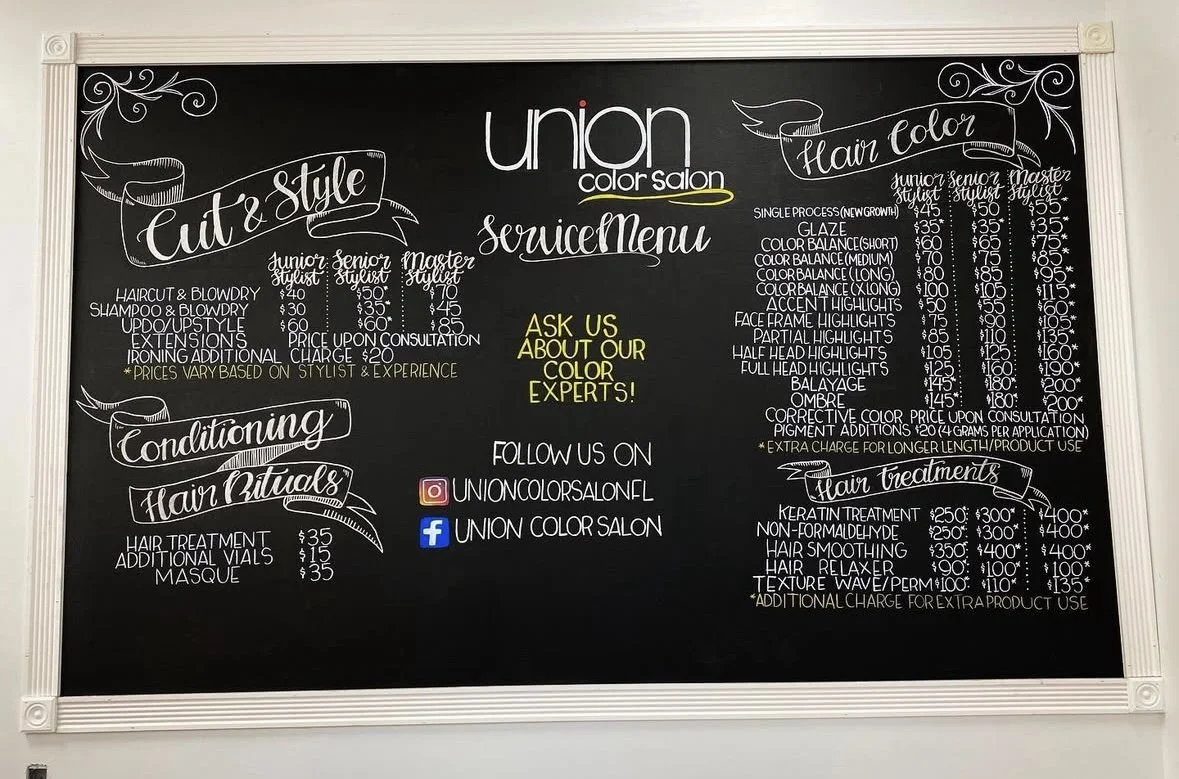 union
color salon
Service Menu
Cut & Style
Junior Stylist Senior Stylist Master Stylist
HAIRCUT & BLOWDRY $40 $50* $70
SHAMPOO & BLOWDRY $30 $35* $45
UPDO/UPSTYLE $60 $60* $85
EXTENSIONS PRICE UPON CONSULTATION
IRONING ADDITIONAL CHARGE $20
*PRICES VARY BASED ON STYLIST & EXPERIENCE
Conditioning
Hair Rituals
HAIR TREATMENT $35
ADDITIONAL VIALS $15
MASQUE $35
ASK US
ABOUT OUR
COLOR
EXPERTS!
FOLLOW US ON
UNIONCOLORSALONFL
UNION COLOR SALON
Hair Color
Junior Stylist Senior Stylist Master Stylist
SINGLE PROCESS (NEW GROWTH) $45 $50 $55*
GLAZE $35* $35* $35
COLOR BALANCE (SHORT) $60 $65 $75*
COLOR BALANCE (MEDIUM) $70 $75 $85*
COLOR BALANCE (LONG) $80 $85 $95*
COLOR BALANCE (X LONG) $100 $105 $115*
ACCENT HIGHLIGHTS $50 $55 $60*
FACE FRAME HIGHLIGHTS $75 $90 $105*
PARTIAL HIGHLIGHTS $85 $110 $135*
HALF HEAD HIGHLIGHTS $105 $125 $160*
FULL HEAD HIGHLIGHTS $125 $160 $190*
BALAYAGE $145* $180* $200*
OMBRE $145* $180* $200*
CORRECTIVE COLOR PRICE UPON CONSULTATION
PIGMENT ADDITIONS $20 (4 GRAMS PER APPLICATION)
*EXTRA CHARGE FOR LONGER LENGTH/PRODUCT USE
Hair Treatments
KERATIN TREATMENT $250* $300* $400*
NON-FORMALDEHYDE $250* $300* $400*
HAIR SMOOTHING $350* $400* $400*
HAIR RELAXER $90* $100* $100*
TEXTURE WAVE/PERM $100* $110* $135*
*ADDITIONAL CHARGE FOR EXTRA PRODUCT USE